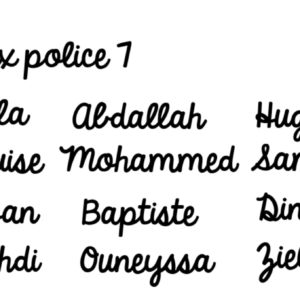 x police 7
la Abdallah Hug
uise Mohammed San
an Baptiste Din
hdi Ouneyssa Zie